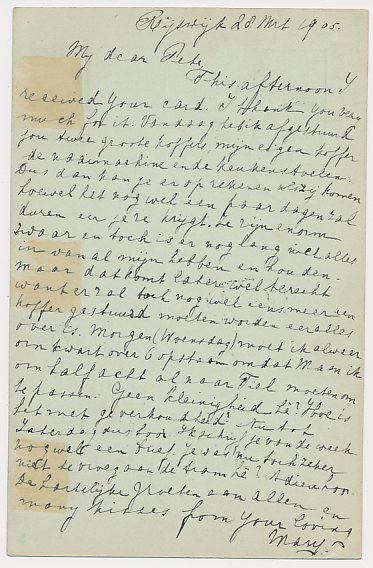 Rijswijk 28 Mrt 1905.
My dear Pete,
This afternoon I
received your card. I thank you very
much for it. Vandaag heb ik afgestuurd
jou twee groote koffers, mijn eigen koffer
de naaimachine en de keukenstoelen.
Dus dan kan je er op rekenen als zij komen
hoewel het nog wel een paar dagen zal
duren eer je ze krijgt. Ze zijn enorm
zwaar en toch is er nog lang niet alles
in van al mijn hebben en houden.
maar dat komt later wel terecht
want er zal toch nog wel eens meer een
koffer gestuurd moeten worden eer alles
over is. Morgen (Woensdag) moet ik alweer
om kwart over 6 opstaan omdat Ma en ik
om half acht al naar Tiel moeten om
te passen. Geen kleinigheid hè? Hoe is
het met je verkoudheid? Nu tot
Zaterdag dus hoor. Ik schrijf je van de week
nog wel een brief, je was nu toch zeker
niet te vroeg aan de tram hè? Adieu hoor.
De hartelijke groeten aan allen en
many kisses from your loving
Mary.